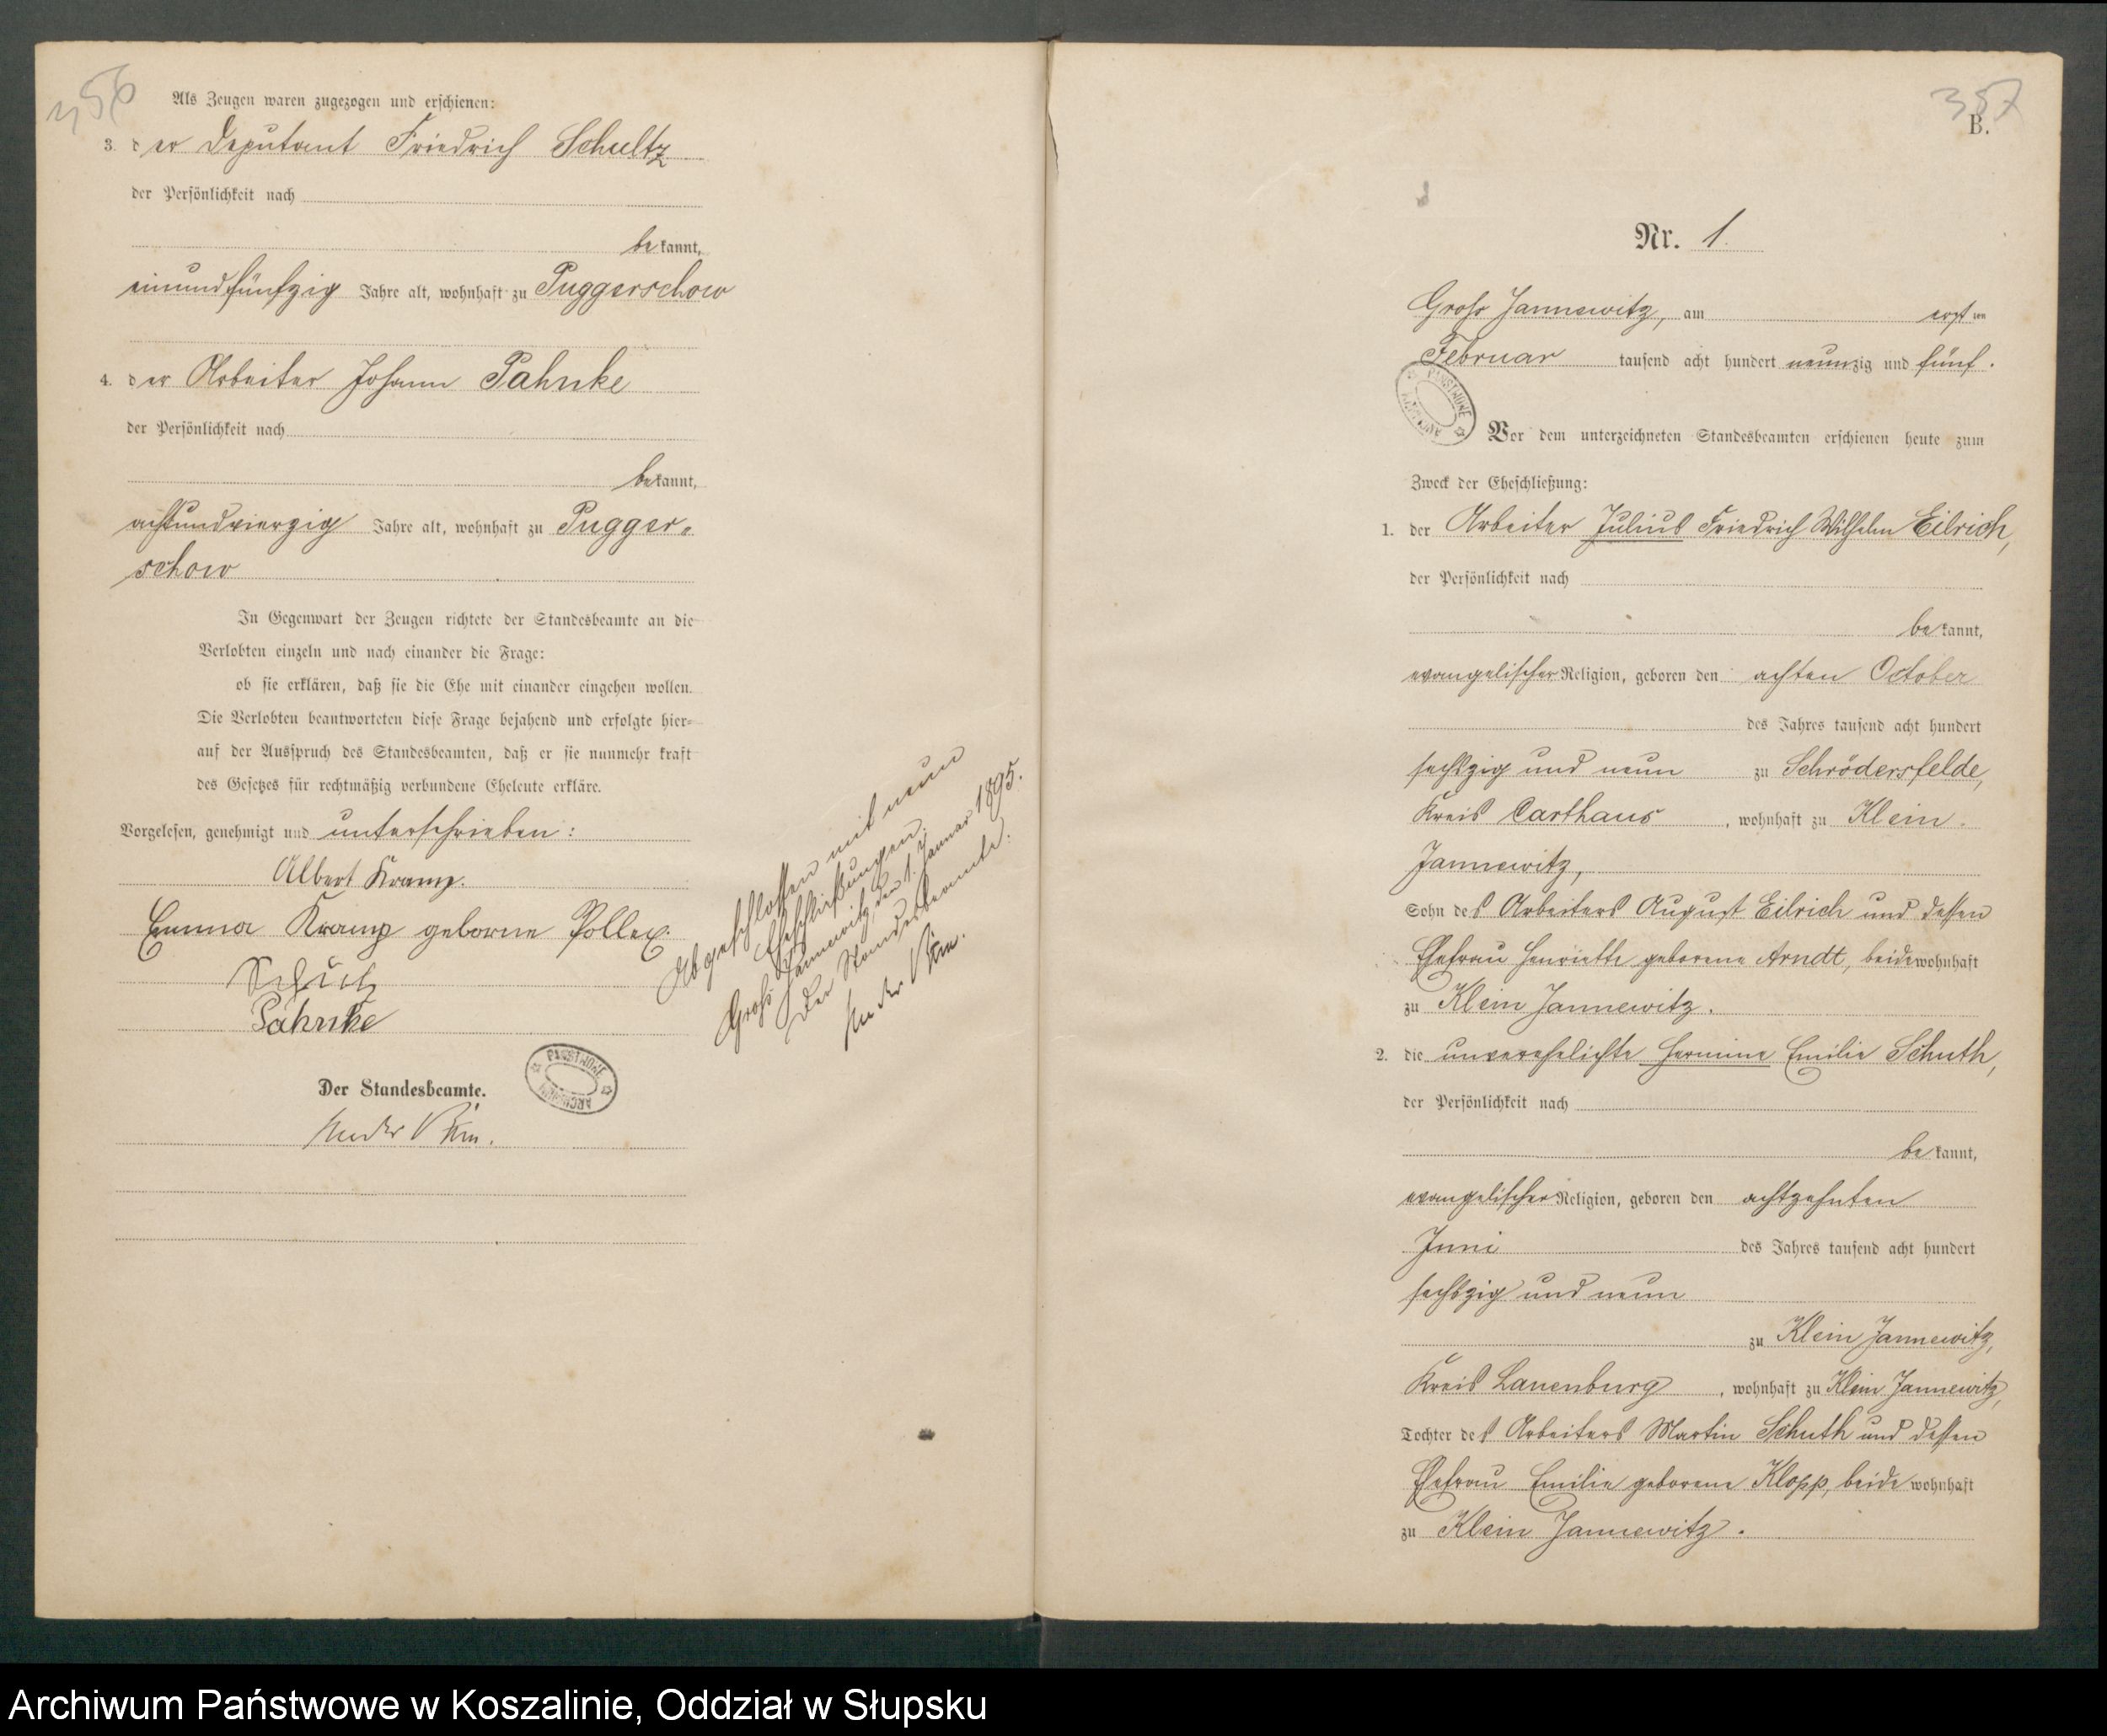 356
Als Zeugen waren zugezogen und erschienen:
3. der Deputant Friedrich Schultz
der Persönlichkeit nach
bekannt,
einundfünfzig Jahre alt, wohnhaft zu Puggerschow
4. der Arbeiter Johann Pahnke
der Persönlichkeit nach
bekannt,
achtundvierzig Jahre alt, wohnhaft zu Pugger=
schow
In Gegenwart der Zeugen richtete der Standesbeamte an die
Verlobten einzeln und nach einander die Frage:
ob sie erklären, daß sie die Ehe mit einander eingehen wollen.
Die Verlobten beantworteten diese Frage bejahend und erfolgte hier=
auf der Ausspruch des Standesbeamten, daß er sie nunmehr kraft
des Gesetzes für rechtmäßig verbundene Eheleute erkläre.
Vorgelesen, genehmigt und unterschrieben:
Albert Kramp.
Emma Kramp geborne Pollex.
Pahnke
Der Standesbeamte.
PAŃSTWOWE ARCHIWUM
Abgeschlossen mit neun
Eheschließungen.
Groß Jannewitz, den 1. Januar 1895.
Der Standesbeamte.
357
B.
Nr. 1.
Groß Jannewitz, am ersten
Februar tausend acht hundert neunzig und fünf.
PAŃSTWOWE ARCHIWUM
Vor dem unterzeichneten Standesbeamten erschienen heute zum
Zweck der Eheschließung:
1. der Arbeiter Julius Friedrich Wilhelm Eilrich,
der Persönlichkeit nach
bekannt,
evangelischer Religion, geboren den achten October
des Jahres tausend acht hundert
sechszig und neun zu Schrödersfelde,
Kreis Carthaus, wohnhaft zu Klein
Jannewitz,
Sohn des Arbeiters August Eilrich und dessen
Ehefrau Henriette geborene Arndt, beide wohnhaft
zu Klein Jannewitz.
2. die unverehelichte Hermine Emilie Schuth,
der Persönlichkeit nach
bekannt,
evangelischer Religion, geboren den achtzehnten
Juni des Jahres tausend acht hundert
sechszig und neun
zu Klein Jannewitz,
Kreis Lauenburg, wohnhaft zu Klein Jannewitz,
Tochter des Arbeiters Martin Schuth und dessen
Ehefrau Emilie geborene Klopp, beide wohnhaft
zu Klein Jannewitz.
Archiwum Państwowe w Koszalinie, Oddział w Słupsku